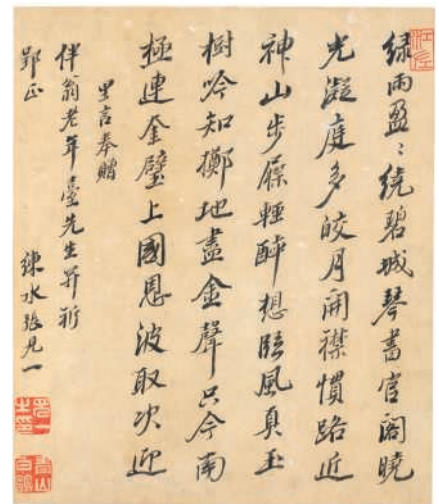 緑雨盈〻繞碧城琴書官閣曉
光凝庭多皎月開襟慣路近
神山步屧輕醉想臨風真玉
樹吟知擲地盡金聲只今南
極連奎璧上國恩波取次迎
里言奉贈
伴翁老年臺先生并祈
郢正 練水張一